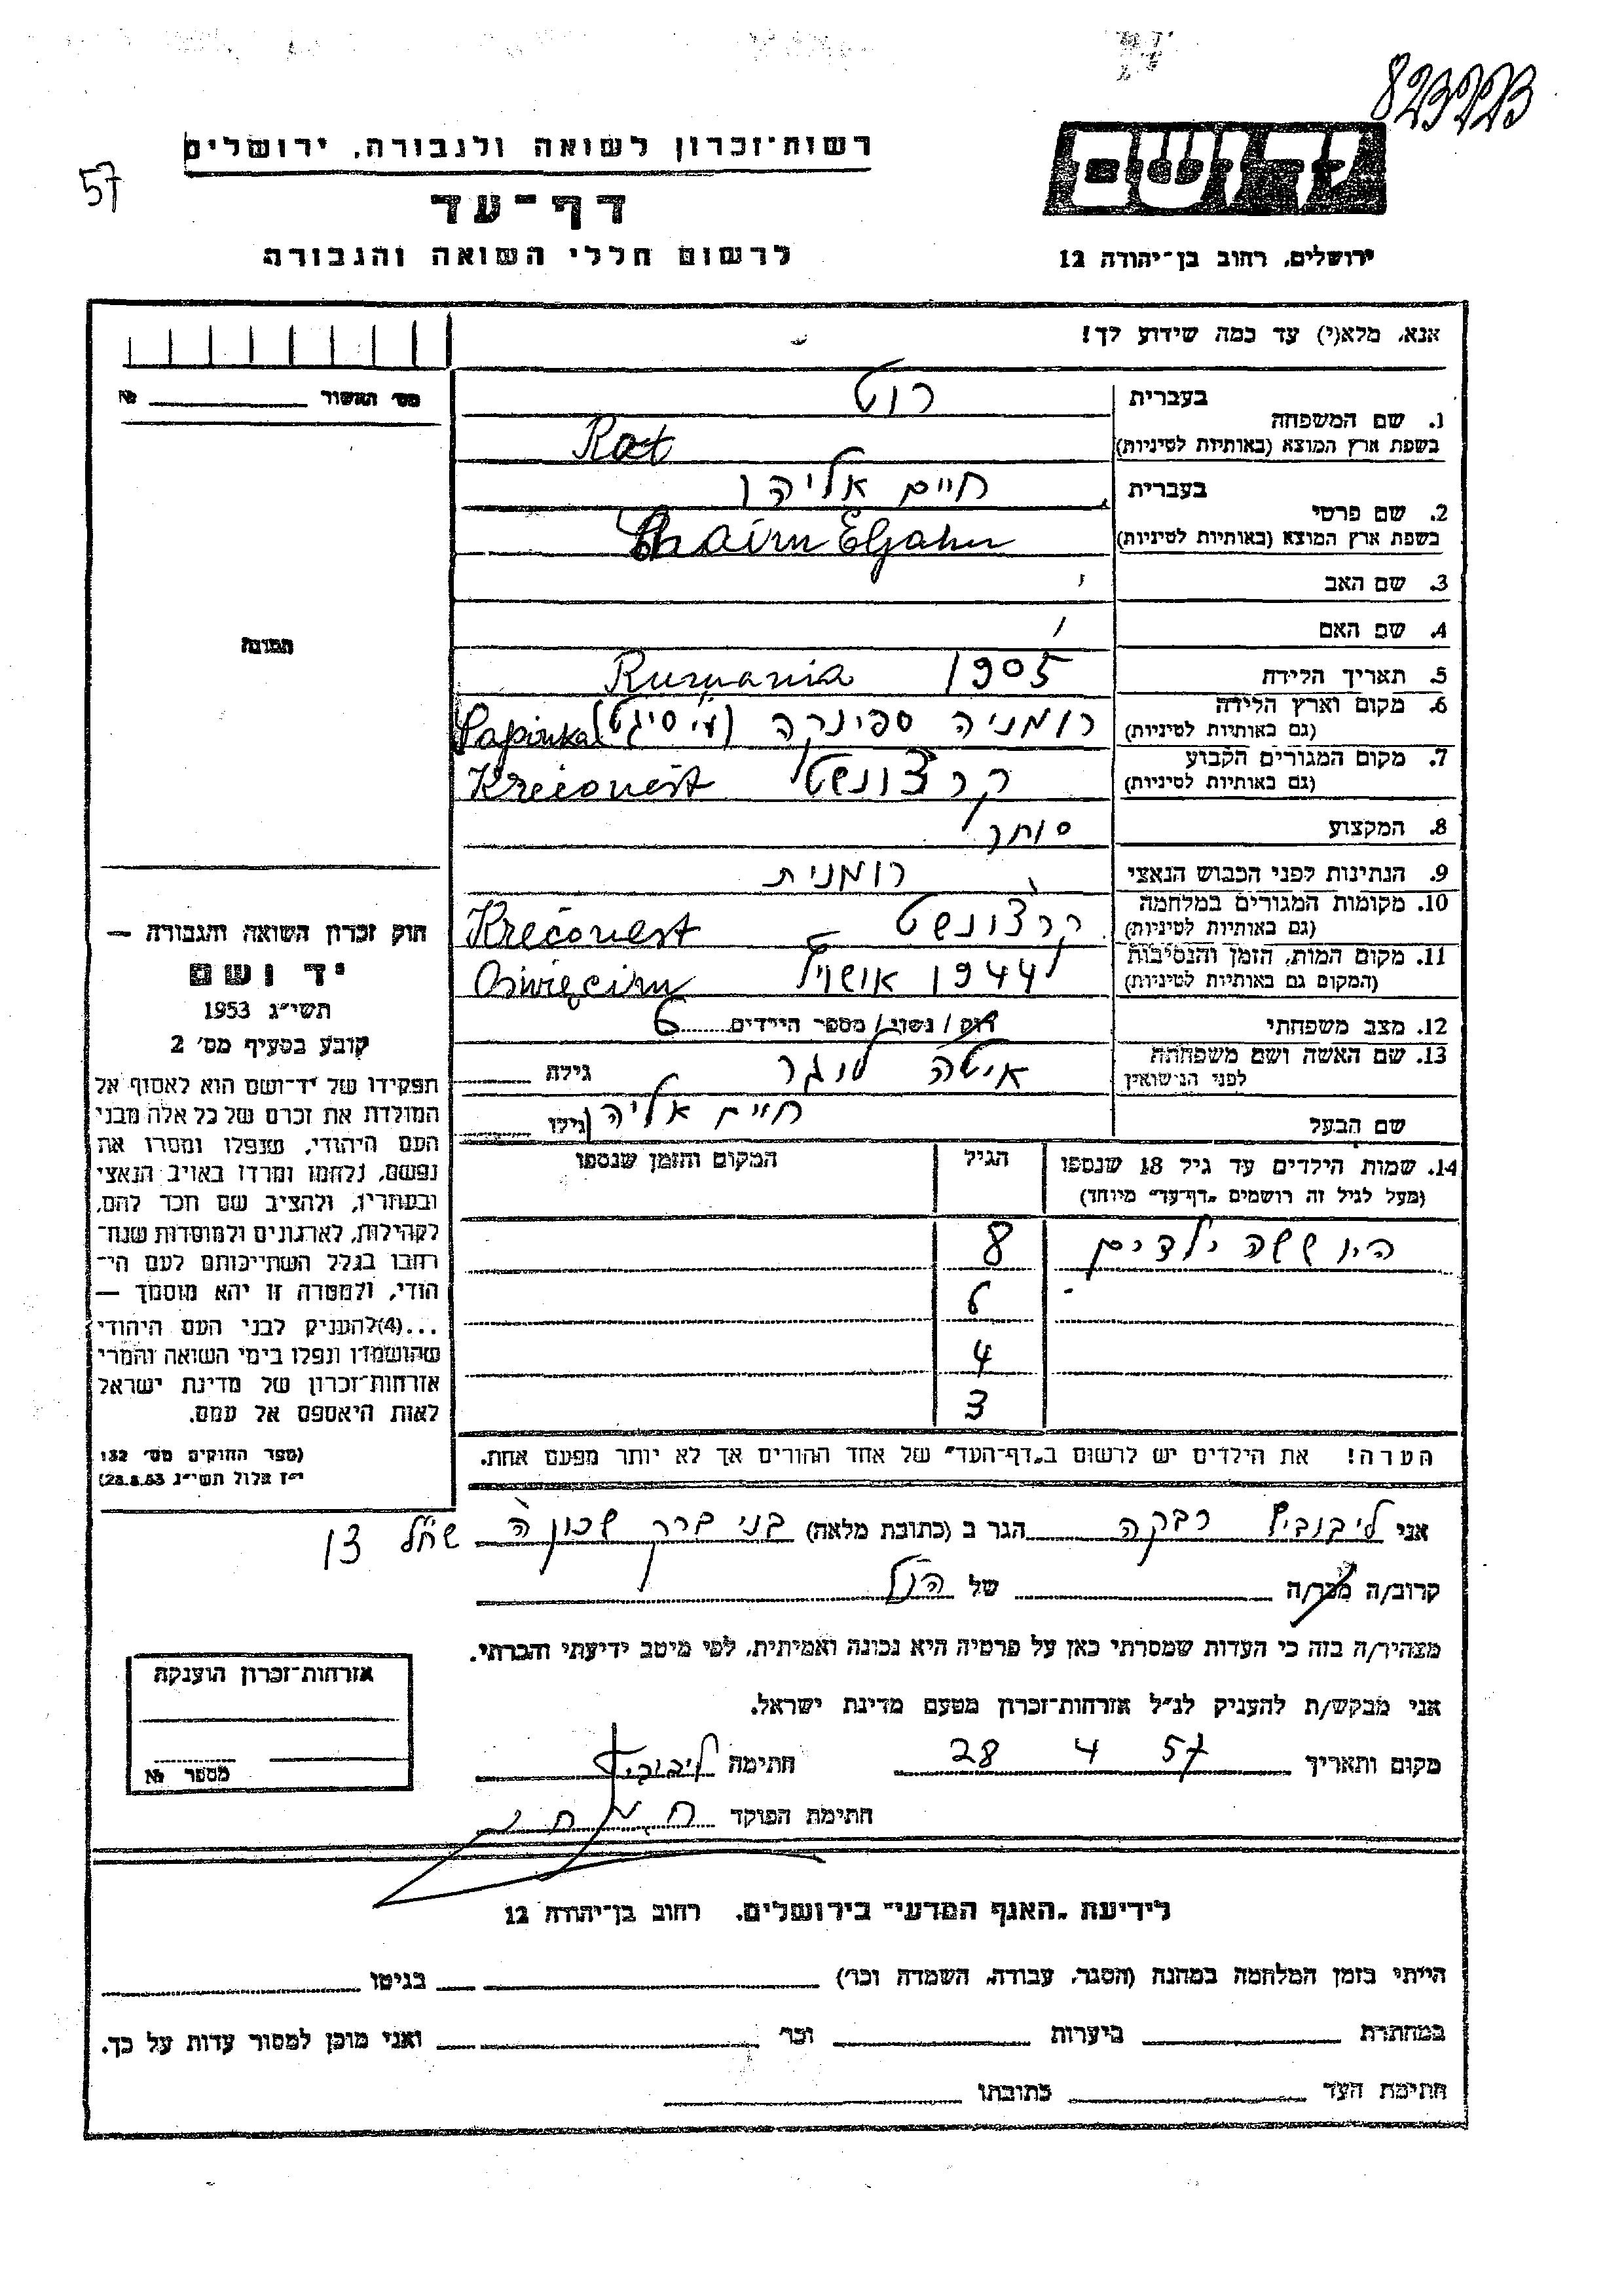 823223
57
רשות־זכרון לשואה ולגבורה, ירושלים
דף־עד
לרשום חללי השואה והגבורה
ירושלים, רחוב בן־יהודה 12
אנא, מלא(י) עד כמה שידוע לך!
מס' האשור №
1. שם המשפחה
בעברית רוט
בשפת ארץ המוצא (באותיות לטיניות) Rot
2. שם פרטי
בעברית חיים אליהו
בשפת ארץ המוצא (באותיות לטיניות) Chaim Eljahu
3. שם האב
4. שם האם
5. תאריך הלידה 1905 Rumania
6. מקום וארץ הלידה רומניה ספינקה (ע"י סיגט) Sapinka
(גם באותיות לטיניות)
7. מקום המגורים הקבוע קרצונשט Krečonešt
(גם באותיות לטיניות)
8. המקצוע סוחר
9. הנתינות לפני הכבוש הנאצי רומנית
10. מקומות המגורים במלחמה קרצונשט Krečonešt
(גם באותיות לטיניות)
11. מקום המות, הזמן והנסיבות 1944 Oświęcim
(המקום גם באותיות לטיניות)
12. מצב משפחתי רוק / נשוי / מספר הילדים 6
13. שם האשה ושם משפחתה איטה לונגר גילה
לפני הנישואין
שם הבעל חיים אליהו גילו
14. שמות הילדים עד גיל 18 שנספו הגיל המקום והזמן שנספו
(מעל לגיל זה רושמים „דף־עד" מיוחד)
היו ששה ילדים 8
6
4
3
הערה! את הילדים יש לרשום ב„דף־העד" של אחד ההורים אך לא יותר מפעם אחת.
תמונה
חוק זכרון השואה והגבורה —
יד ושם
תשי"ג 1953
קובע בסעיף מס' 2
תפקידו של יד־ושם הוא לאסוף אל
המולדת את זכרם של כל אלה מבני
העם היהודי, שנפלו ומסרו את
נפשם, נלחמו ומרדו באויב הנאצי
ובעוזריו, ולהציב שם וזכר להם,
לקהילות, לארגונים ולמוסדות שנח־
רבו בגלל השתייכותם לעם הי־
הודי, ולמטרה זו יהא מוסמך —
...(4) להעניק לבני העם היהודי
שהושמדו ונפלו בימי השואה והמרי
אזרחות־זכרון של מדינת ישראל
לאות היאספם אל עמם.
(ספר החוקים מס' 132
י"ז אלול תשי"ג 28.8.53)
אני ליבוביץ רבקה הגר ב (כתובת מלאה) בני ברק שכונה ה
קרוב/ה מכר/ה של הנ"ל
מצהיר/ה בזה כי העדות שמסרתי כאן על פרטיה היא נכונה ואמיתית, לפי מיטב ידיעתי והכרתי.
אני מבקש/ת להעניק לנ"ל אזרחות־זכרון מטעם מדינת ישראל.
מקום ותאריך 28 4 57 חתימה ליבוביץ
חתימת הפוקד
אזרחות־זכרון הוענקה
מספר №
לידיעת „האגף המדעי" בירושלים, רחוב בן־יהודה 12
הייתי בזמן המלחמה במחנה (הסגר, עבודה, השמדה וכו') בגיטו
במחתרת ביערות וכו' ואני מוכן למסור עדות על כך.
חתימת העד כתובתו